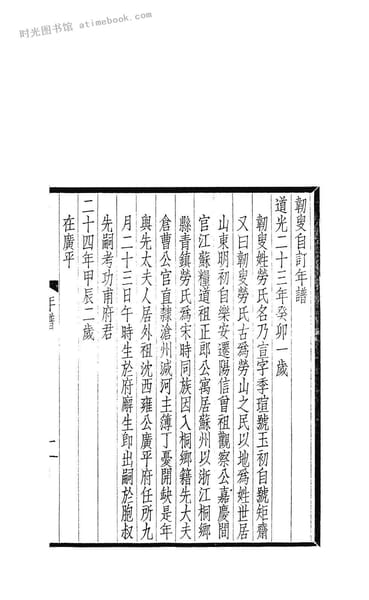 时光图书馆 atimebook.com
韌叟自訂年譜
道光二十三年癸卯一歲
韌叟姓勞氏名乃宣字季瑄號玉初自號矩齋
又曰韌叟勞氏古爲勞山之民以地爲姓世居
山東明初自樂安遷陽信曾祖觀察公嘉慶間
官江蘇糧道祖正郎公寓居蘇州以浙江桐鄉
縣青鎮勞氏爲宋時同族因入桐鄉籍先大夫
倉曹公官直隸滄州減河主簿丁憂開缺是年
與先太夫人居外祖沈西雍公廣平府任所九
月二十三日午時生於府廨生卽出嗣於胞叔
先嗣考功甫府君
二十四年甲辰二歲
在廣平
年譜
一